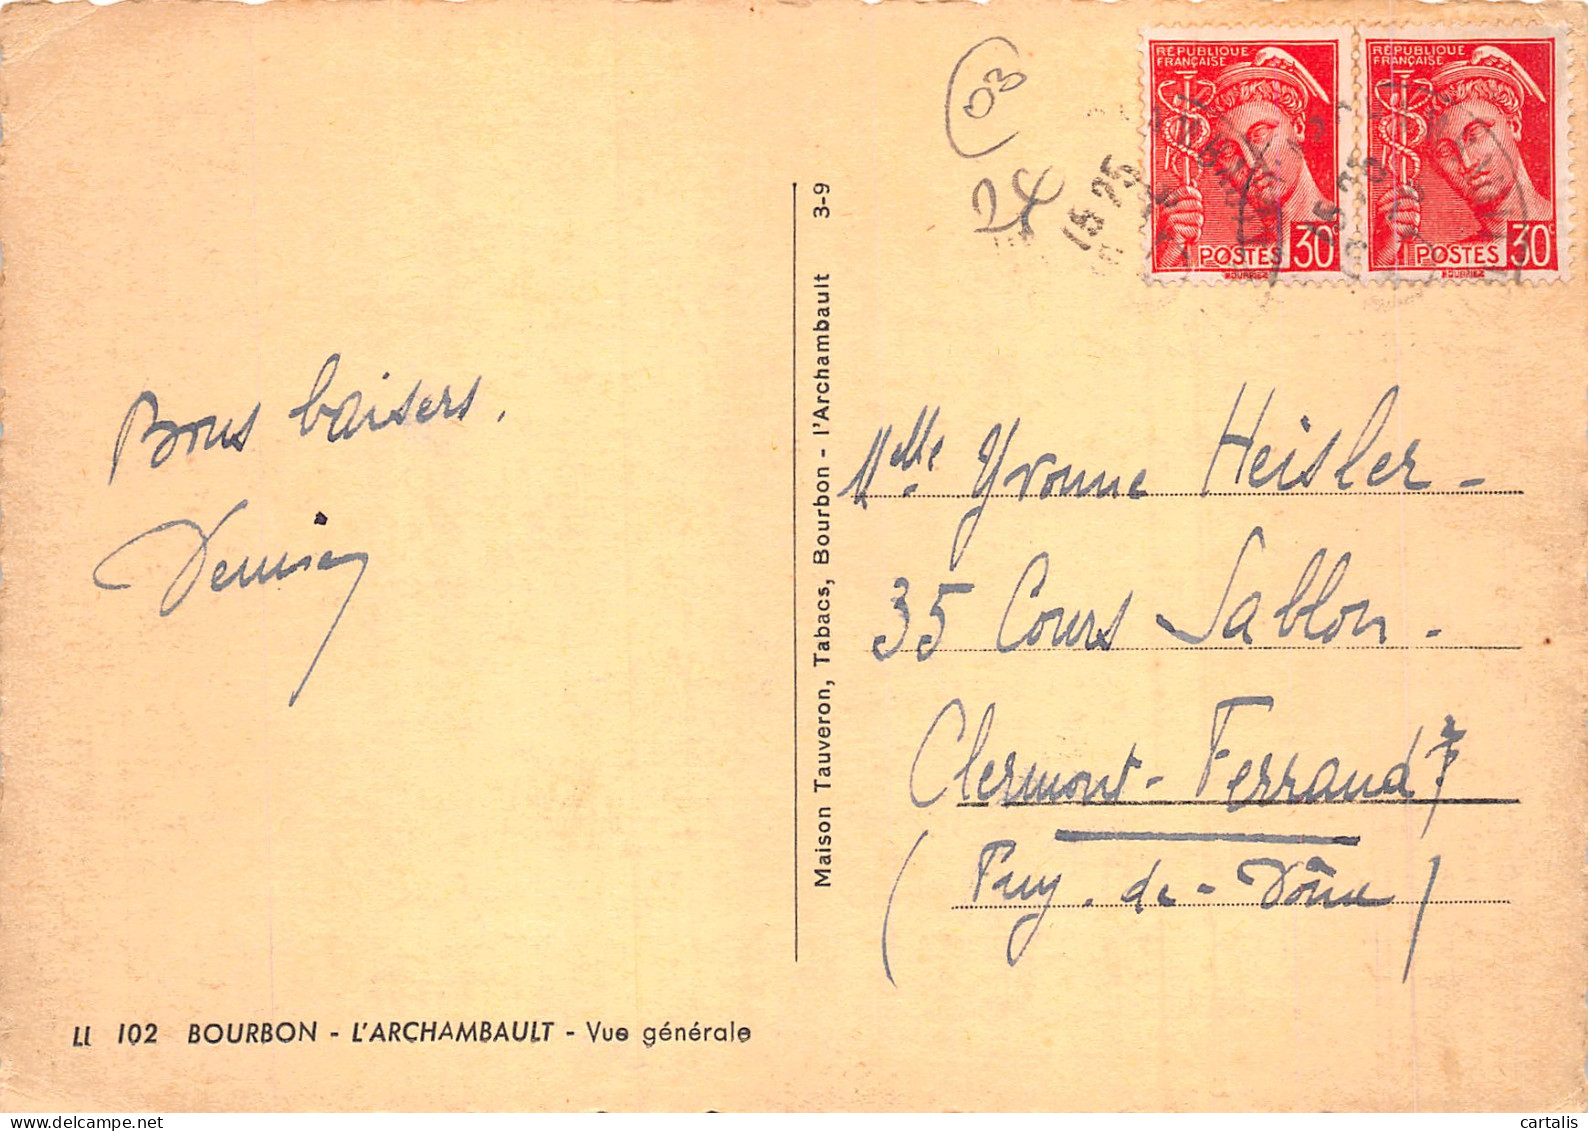 03
24
RÉPUBLIQUE
FRANÇAISE
POSTES 30c
RÉPUBLIQUE
FRANÇAISE
POSTES 30c
15 25
15 25
Bons baisers.
Denise
Maison Tauveron, Tabacs, Bourbon - l'Archambault 3-9
Melle Yvonne Heisler -
35 Cours Sablon.
Clermont-Ferrand
(Puy-de-Dôme)
LL 102 BOURBON - L'ARCHAMBAULT - Vue générale
cartalis